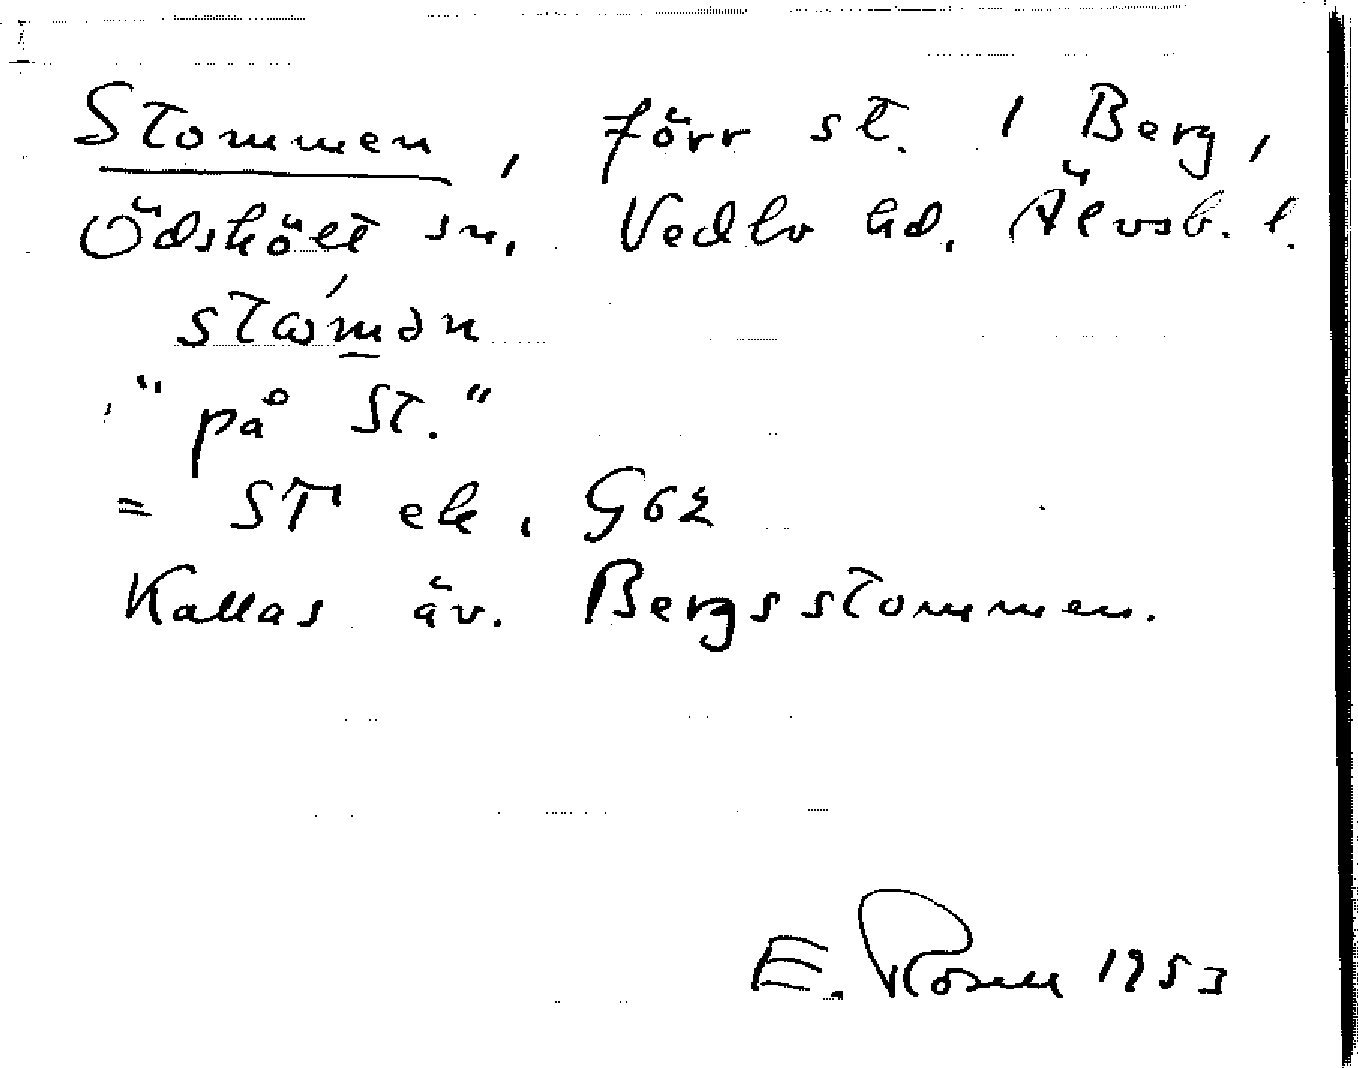 Stommen, förr st. 1 Berg,
Ödskölt sn, Vedbo hd. Älvsb. l.
"på St."
= ST ek. G62
Kallas äv. Bergsstommen.
E. Rosell 1953